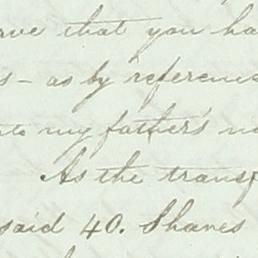 ave that you ha
s - as by referenc
to my father's n
As the transf
said 40. Shares